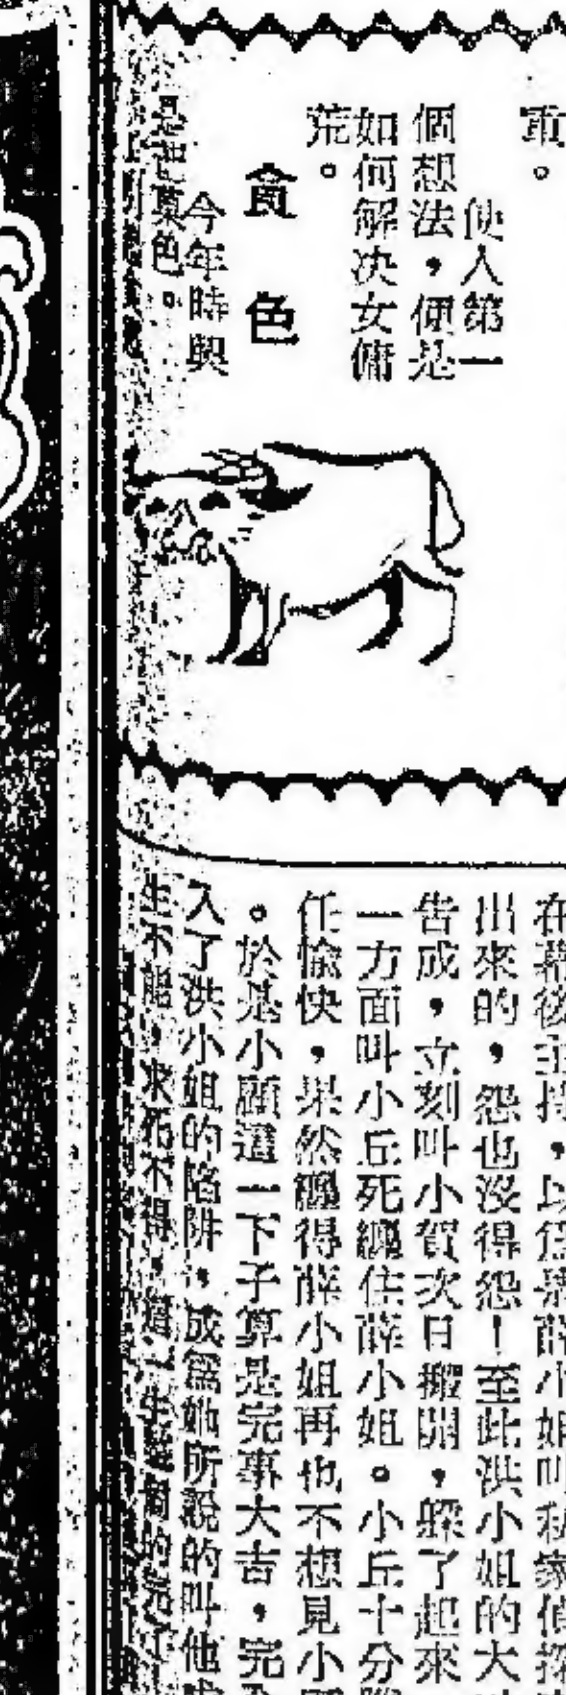 重。
使人第一
個想法，便是
如何解决女傭
荒。
食色
今年時興
菜色。
在幕後主持，以為是薛小姐叫私家偵探
出來的，怨也沒得怨！至此洪小姐的大
告成，立刻叫小賀次日搬開，躱了起來
一方面叫小丘死纏住薛小姐。小丘十分
任愉快，果然纏得薛小姐再也不想見小
。於是小顧這一下子算是完事大吉，完
入了洪小姐的陷阱，成爲她所說的叫他
生不能，求死不得，